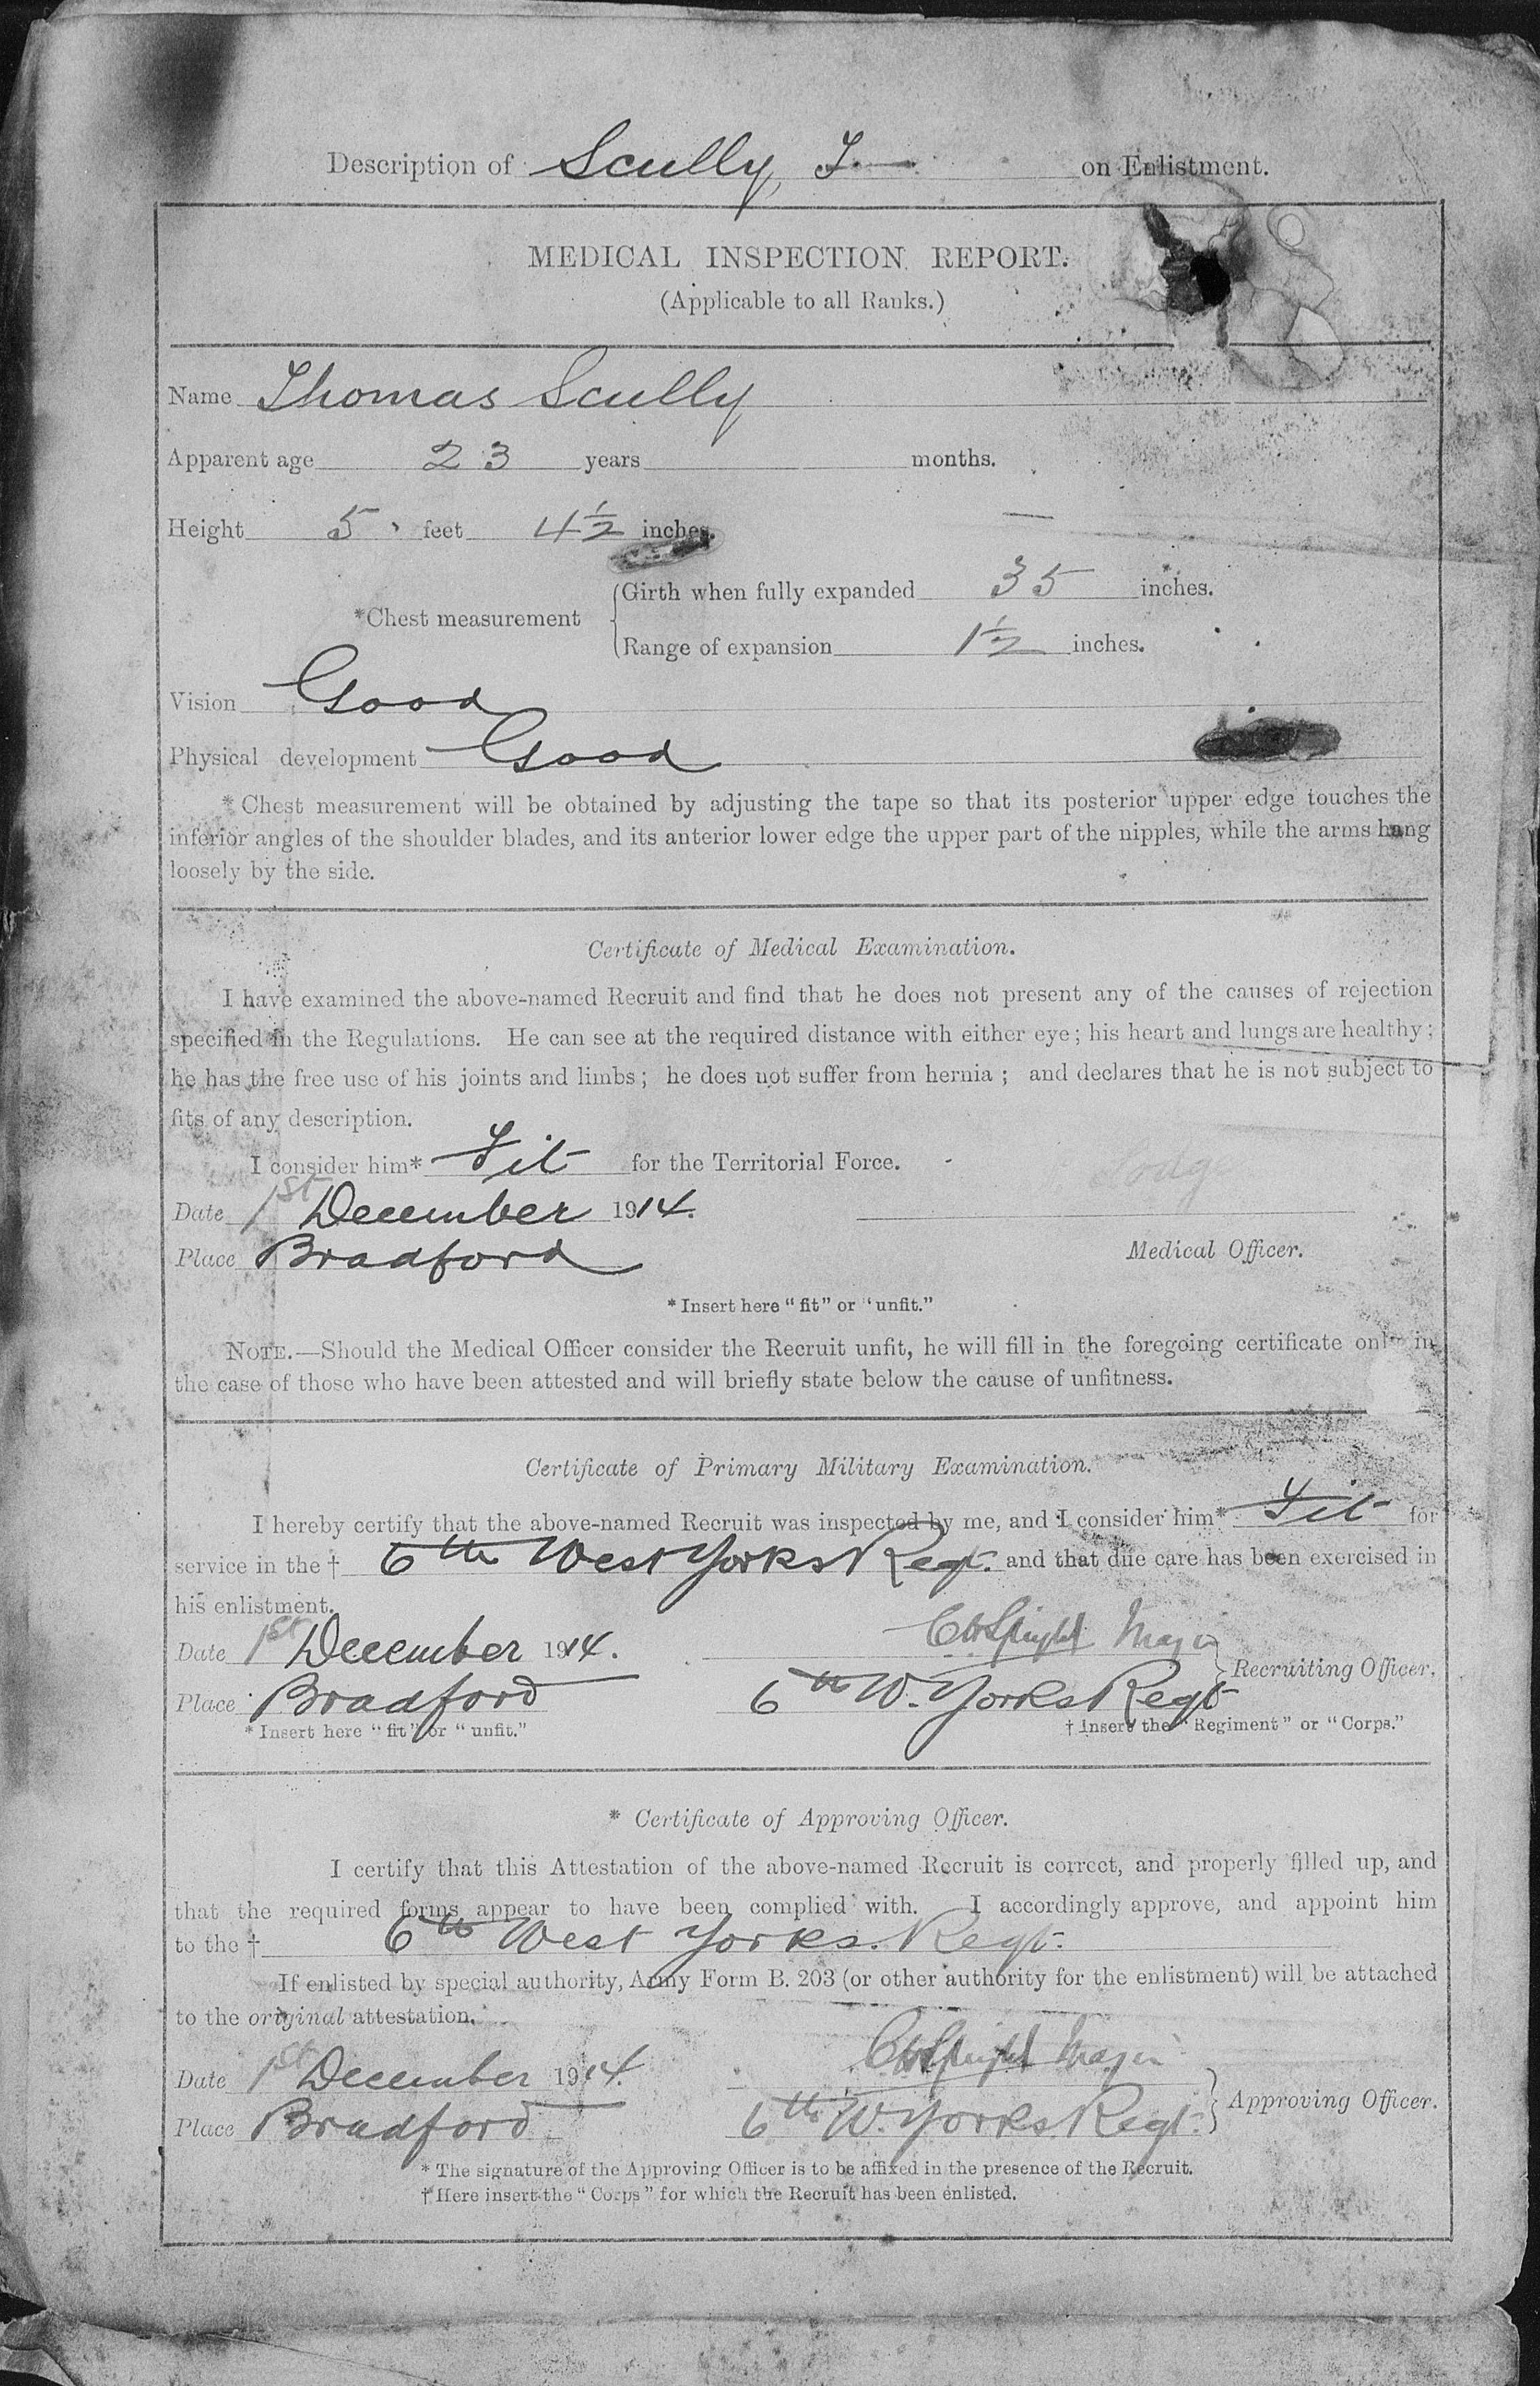 Description of Scully, T on Enlistment.
MEDICAL INSPECTION REPORT.
(Applicable to all Ranks.)
Name Thomas Scully
Apparent age 23 years months.
Height 5 feet 4½ inches.
Girth when fully expanded 35 inches.
*Chest measurement
Range of expansion 1½ inches.
Vision Good
Physical development Good
* Chest measurement will be obtained by adjusting the tape so that its posterior upper edge touches the
inferior angles of the shoulder blades, and its anterior lower edge the upper part of the nipples, while the arms hang
loosely by the side.
Certificate of Medical Examination.
I have examined the above-named Recruit and find that he does not present any of the causes of rejection
specified in the Regulations. He can see at the required distance with either eye; his heart and lungs are healthy;
he has the free use of his joints and limbs; he does not suffer from hernia; and declares that he is not subject to
fits of any description.
I consider him* Fit for the Territorial Force.
Date 1st December 1914.
Place Bradford
Medical Officer.
* Insert here "fit" or "unfit."
NOTE.—Should the Medical Officer consider the Recruit unfit, he will fill in the foregoing certificate only in
the case of those who have been attested and will briefly state below the cause of unfitness.
Certificate of Primary Military Examination.
I hereby certify that the above-named Recruit was inspected by me, and I consider him* Fit for
service in the † 6th West Yorks Regt. and that due care has been exercised in
his enlistment.
Date 1st December 1914. Major
Recruiting Officer.
Place Bradford 6th W. Yorks Regt
* Insert here "fit" or "unfit." † Insert the "Regiment" or "Corps."
* Certificate of Approving Officer.
I certify that this Attestation of the above-named Recruit is correct, and properly filled up, and
that the required forms appear to have been complied with. I accordingly approve, and appoint him
to the † 6th West Yorks. Regt.
If enlisted by special authority, Army Form B. 203 (or other authority for the enlistment) will be attached
to the original attestation.
Date 1st December 1914. Major
Approving Officer.
Place Bradford 6th W. Yorks Regt.
* The signature of the Approving Officer is to be affixed in the presence of the Recruit.
† Here insert the "Corps" for which the Recruit has been enlisted.